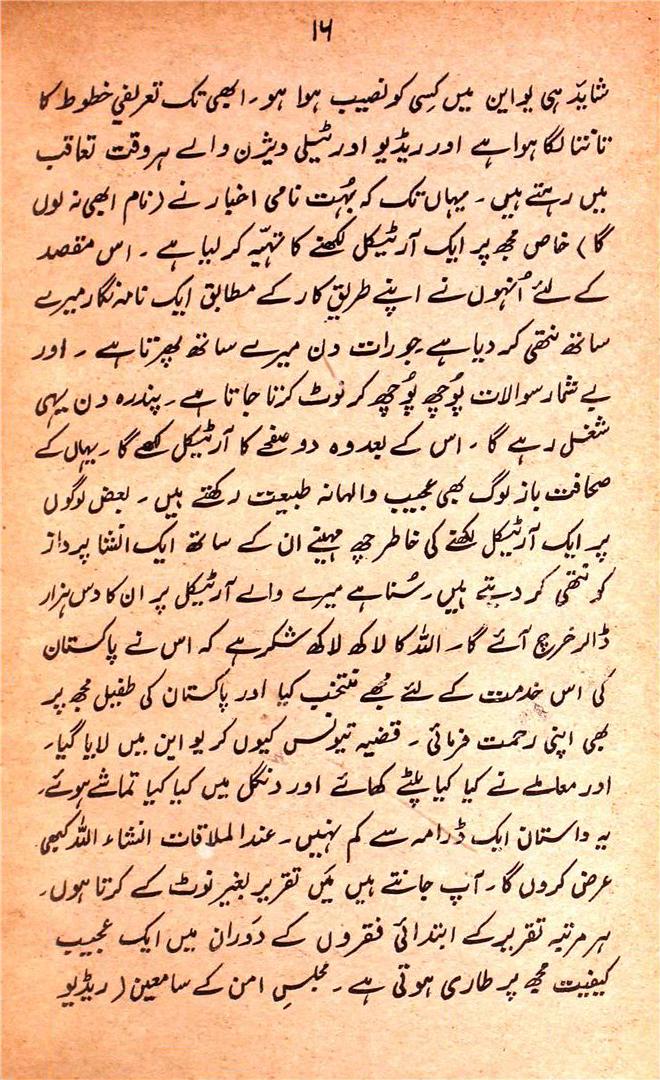 ۱۶
شاید ہی یو این میں کِسی کو نصیب ہوا ہو۔ ابھی تک تعریفی خطوط کا
تانتا لگا ہوا ہے اور ریڈیو اور ٹیلی ویژن والے ہر وقت تعاقب
میں رہتے ہیں۔ یہاں تک کہ بہُت نامی اخبار نے (نام ابھی نہ لوں
گا) خاص مجھ پر ایک آرٹیکل لکھنے کا تہیّہ کر لیا ہے۔ اس مقصد
کے لئے اُنہوں نے اپنے طریقِ کار کے مطابق ایک نامہ نگار میرے
ساتھ نتھی کر دیا ہے جو رات دن میرے ساتھ پھرتا ہے۔ اور
بے شمار سوالات پوُچھ پوُچھ کر نوٹ کرتا جاتا ہے۔ پندرہ دن یہی
شغل رہے گا۔ اس کے بعد وہ دو صفحے کا آرٹیکل لکھے گا۔ یہاں کے
صحافت باز لوگ بھی عجیب والہانہ طبیعت رکھتے ہیں۔ بعض لوگوں
پر ایک آرٹیکل لکھنے کی خاطر چھ مہینے ان کے ساتھ ایک انشا پرداز
کو نتھی کر دیتے ہیں۔ سُنا ہے میرے والے آرٹیکل پر ان کا دس ہزار
ڈالر خرچ آئے گا۔ اللہ کا لاکھ لاکھ شکر ہے کہ اس نے پاکستان
کی اس خدمت کے لئے مجُھے منتخب کیا اور پاکستان کی طفیل مجھ پر
بھی اپنی رحمت فرمائی۔ قضیہ تیونس کیوں کر یو این میں لایا گیا۔
اور معاملے نے کیا کیا پلٹے کھائے اور دنگل میں کیا کیا تماشے ہوئے۔
یہ داستان ایک ڈرامہ سے کم نہیں۔ عند الملاقات انشاء اللہ کبھی
عرض کروں گا۔ آپ جانتے ہیں میَں تقریر بغیر نوٹ کے کرتا ہوں۔
ہر مرتبہ تقریر کے ابتدائی فقروں کے دَوران میں ایک عجیب
کیفیت مجھ پر طاری ہوتی ہے۔ مجلسِ امن کے سامعین (ریڈیو